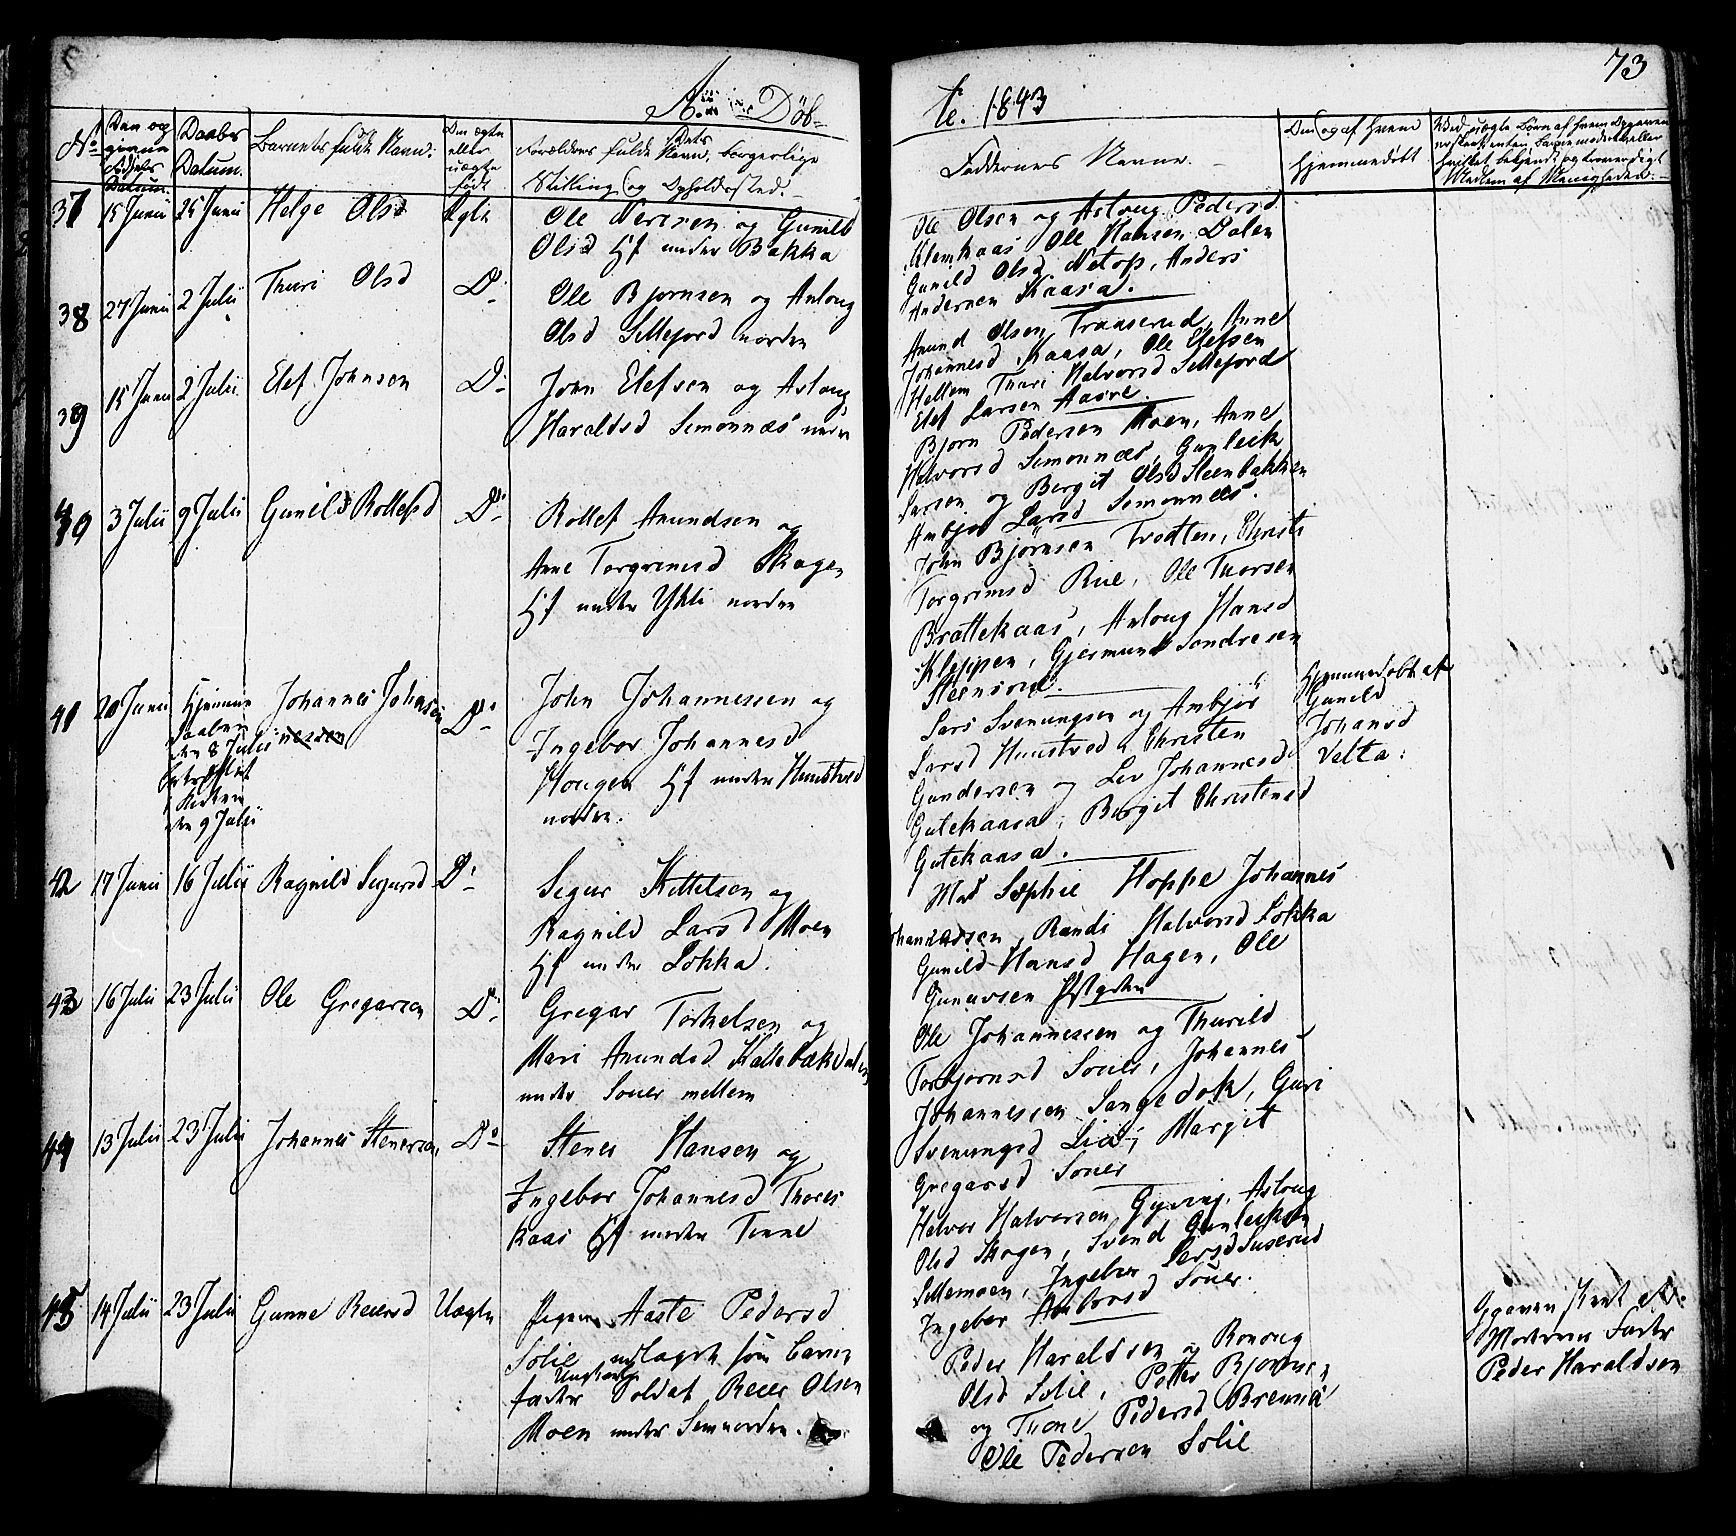 73
Døb- te. 1843
No
Den og
Fødsels Datum.
Daabs Datum.
Barnets fulde Navn.
Om ægte eller uægte født
Forældrenes fulde Navn, borgerlige
Stilling og Opholdssted.
Faddernes Navne.
Om og af hvem hjemmedøbt
Medlem af Menigheden.
37 15 Junii 25 Junii Helge Olsd Ægte
Ole Nersen og Gunild
Olsd Hf under Bakka
Ole Olsen og Asloug Pedersd
Klemkaas Ole Hansen Dalen
Gunild Olsd Netop, Anders
Andersen Kaasa.
38 27 Junii 2 Julii Thuri Olsd Do
Ole Bjørnsen og Anloug
Olsd Sillejord norden
Amund Olsen Traaserud, Anne
Johannesd Kaasa, Ole Elefsen
Hellem Thuri Halvorsd Sillejord
Elef Larsen Aasne.
39 15 Junii 2 Julii Elef Johnsen Do
John Elefsen og Asloug
Haraldsd Simonnæs
Bjørn Pedersen Moen, Anne
Halvorsd Simonnæs, Gunleik
Larsen og Bergit Olsd Steenbakken
Ambjør Larsd Simonnæs.
40 3 Julii 9 Julii Gunild Rollefsd Do
Rollef Amundsen og
Anne Torgrimsd Skogen
Hf under Ytli norden
John Bjørnsen Trotten, Christi
Torgrimsd Rue, Ole Thorsen
Brattekaas, Anloug Hansd
Kleppen, Gjermund Sondresen
41 20 Junii Hjemme
daaben
den 8 Julii
i Kirken
den 9 Julii
Johannes Johnsen Do
John Johannessen og
Ingebor Johannesd
Hougen Hf under Hunstved
norden.
Lars Svenungsen og Ambjør
Larsd Hunstved, Christen
Gundersen og Liv Johannesd
Gutekaasa, Bergit Christensd
Gutekaasa.
Hjemmedøbt af
Gunild
Johansd
Velta.
42 17 Junii 16 Julii Ragnild Sigursd Do
Sigur Kittelsen og
Ragnild Larsd Moen
Hf under Løkka.
Mad Sophie Hoppe Johannes
Johannessen, Randi Halvorsd Løkka
Gunild Hansd Hagen, Ole
Gunuvsen
43 16 Julii 23 Julii Ole Gregarsen Do
Gregar Torkelsen og
Mari Amundsd Kallebækdalen
under Souer mellem
Ole Johannessen og Thurild
Torbjørnsd Souer, Johannes
Johannessen Langedok, Guri
Svenungsd Lia, Margit
Gregarsd Souer
44 13 Julii 23 Julii Johannes Stenersen Do
Stener Hansen og
Ingebor Johannesd Thores
kaas Hf under Tinne
Halvor Halvorsen Gyving, Aslong
Olsd Skogen, Svend Gunleiksen
Sillemoen, Ingebor Larsd Suserud
Ingebor Halvorsd Souer.
45 14 Julii 23 Julii Gunne Reiersd Uægte
Pigen Aaste Pedersd
Solie, udlagt som Barne
fader Ungkarl Soldat Reier Olsen
Moen under Sem norden.
Peder Haraldsen og Ronoug
Olsd Solie, Petter Bjørnsen
og Tione Pedersd Brennia
Ole Pedersen Solie
Opgaven skeet af
Moderens Fader
Peder Haraldsen